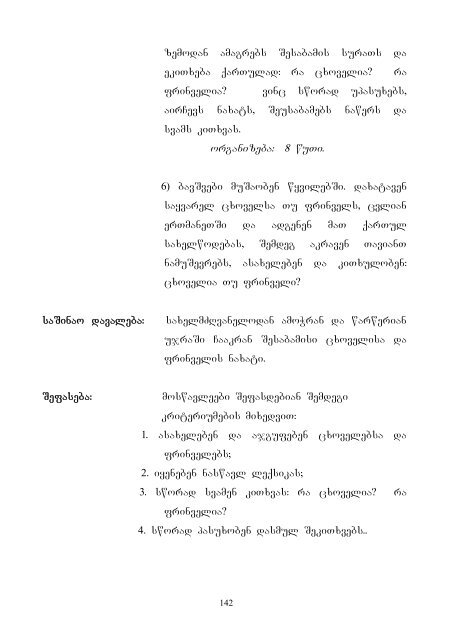 ზემოდან ამაგრებს შესაბამის სურათს და
ეკითხება ქართულად: რა ცხოველია? რა
ფრინველია? ვინც სწორად უპასუხებს,
აირჩევს ნახატს, შეუსაბამებს ნაწერს და
სვამს კითხვას.
ორგანიზება: 8 წუთი.
6) ბავშვები მუშაობენ წყვილებში. დახატავენ
საყვარელ ცხოველსა თუ ფრინველს, ცვლიან
ერთმანეთში და ადგენენ მათ ქართულ
სახელწოდებას, შემდეგ აკრავენ თავიანთ
ნამუშევრებს, ასახელებენ და კითხულობენ:
ცხოველია თუ ფრინველი?
საშინაო დავალება: სახელმძღვანელოდან ამოჭრან და წარწერიან
უჯრაში ჩააკრან შესაბამისი ცხოველისა და
ფრინველის ნახატი.
შეფასება: მოსწავლეები შეფასდებიან შემდეგი
კრიტერიუმების მიხედვით:
1. ასახელებენ და აჯგუფებენ ცხოველებსა და
ფრინველებს;
2. იყენებენ ნასწავლ ლექსიკას;
3. სწორად სვამენ კითხვას: რა ცხოველია? რა
ფრინველია?
4. სწორად პასუხობენ დასმულ შეკითხვებს..
142